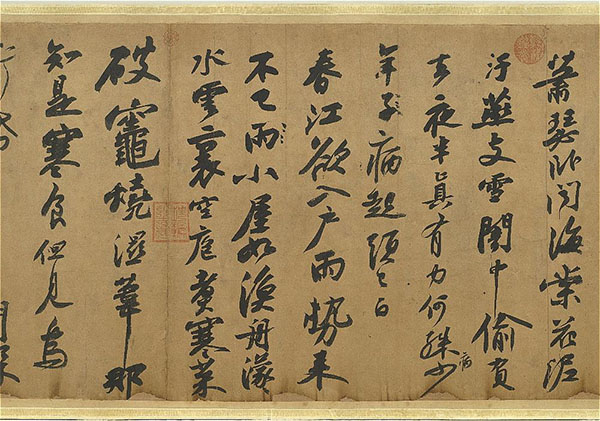 蕭瑟臥聞海棠花泥
汙燕支雪闇中偷負
去夜半真有力何殊少病
年子病起頭已白
春江欲入戶雨勢來
不已雨小屋如漁舟濛
水雲裏空庖煮寒菜
破竈燒濕葦那
知是寒食但見烏